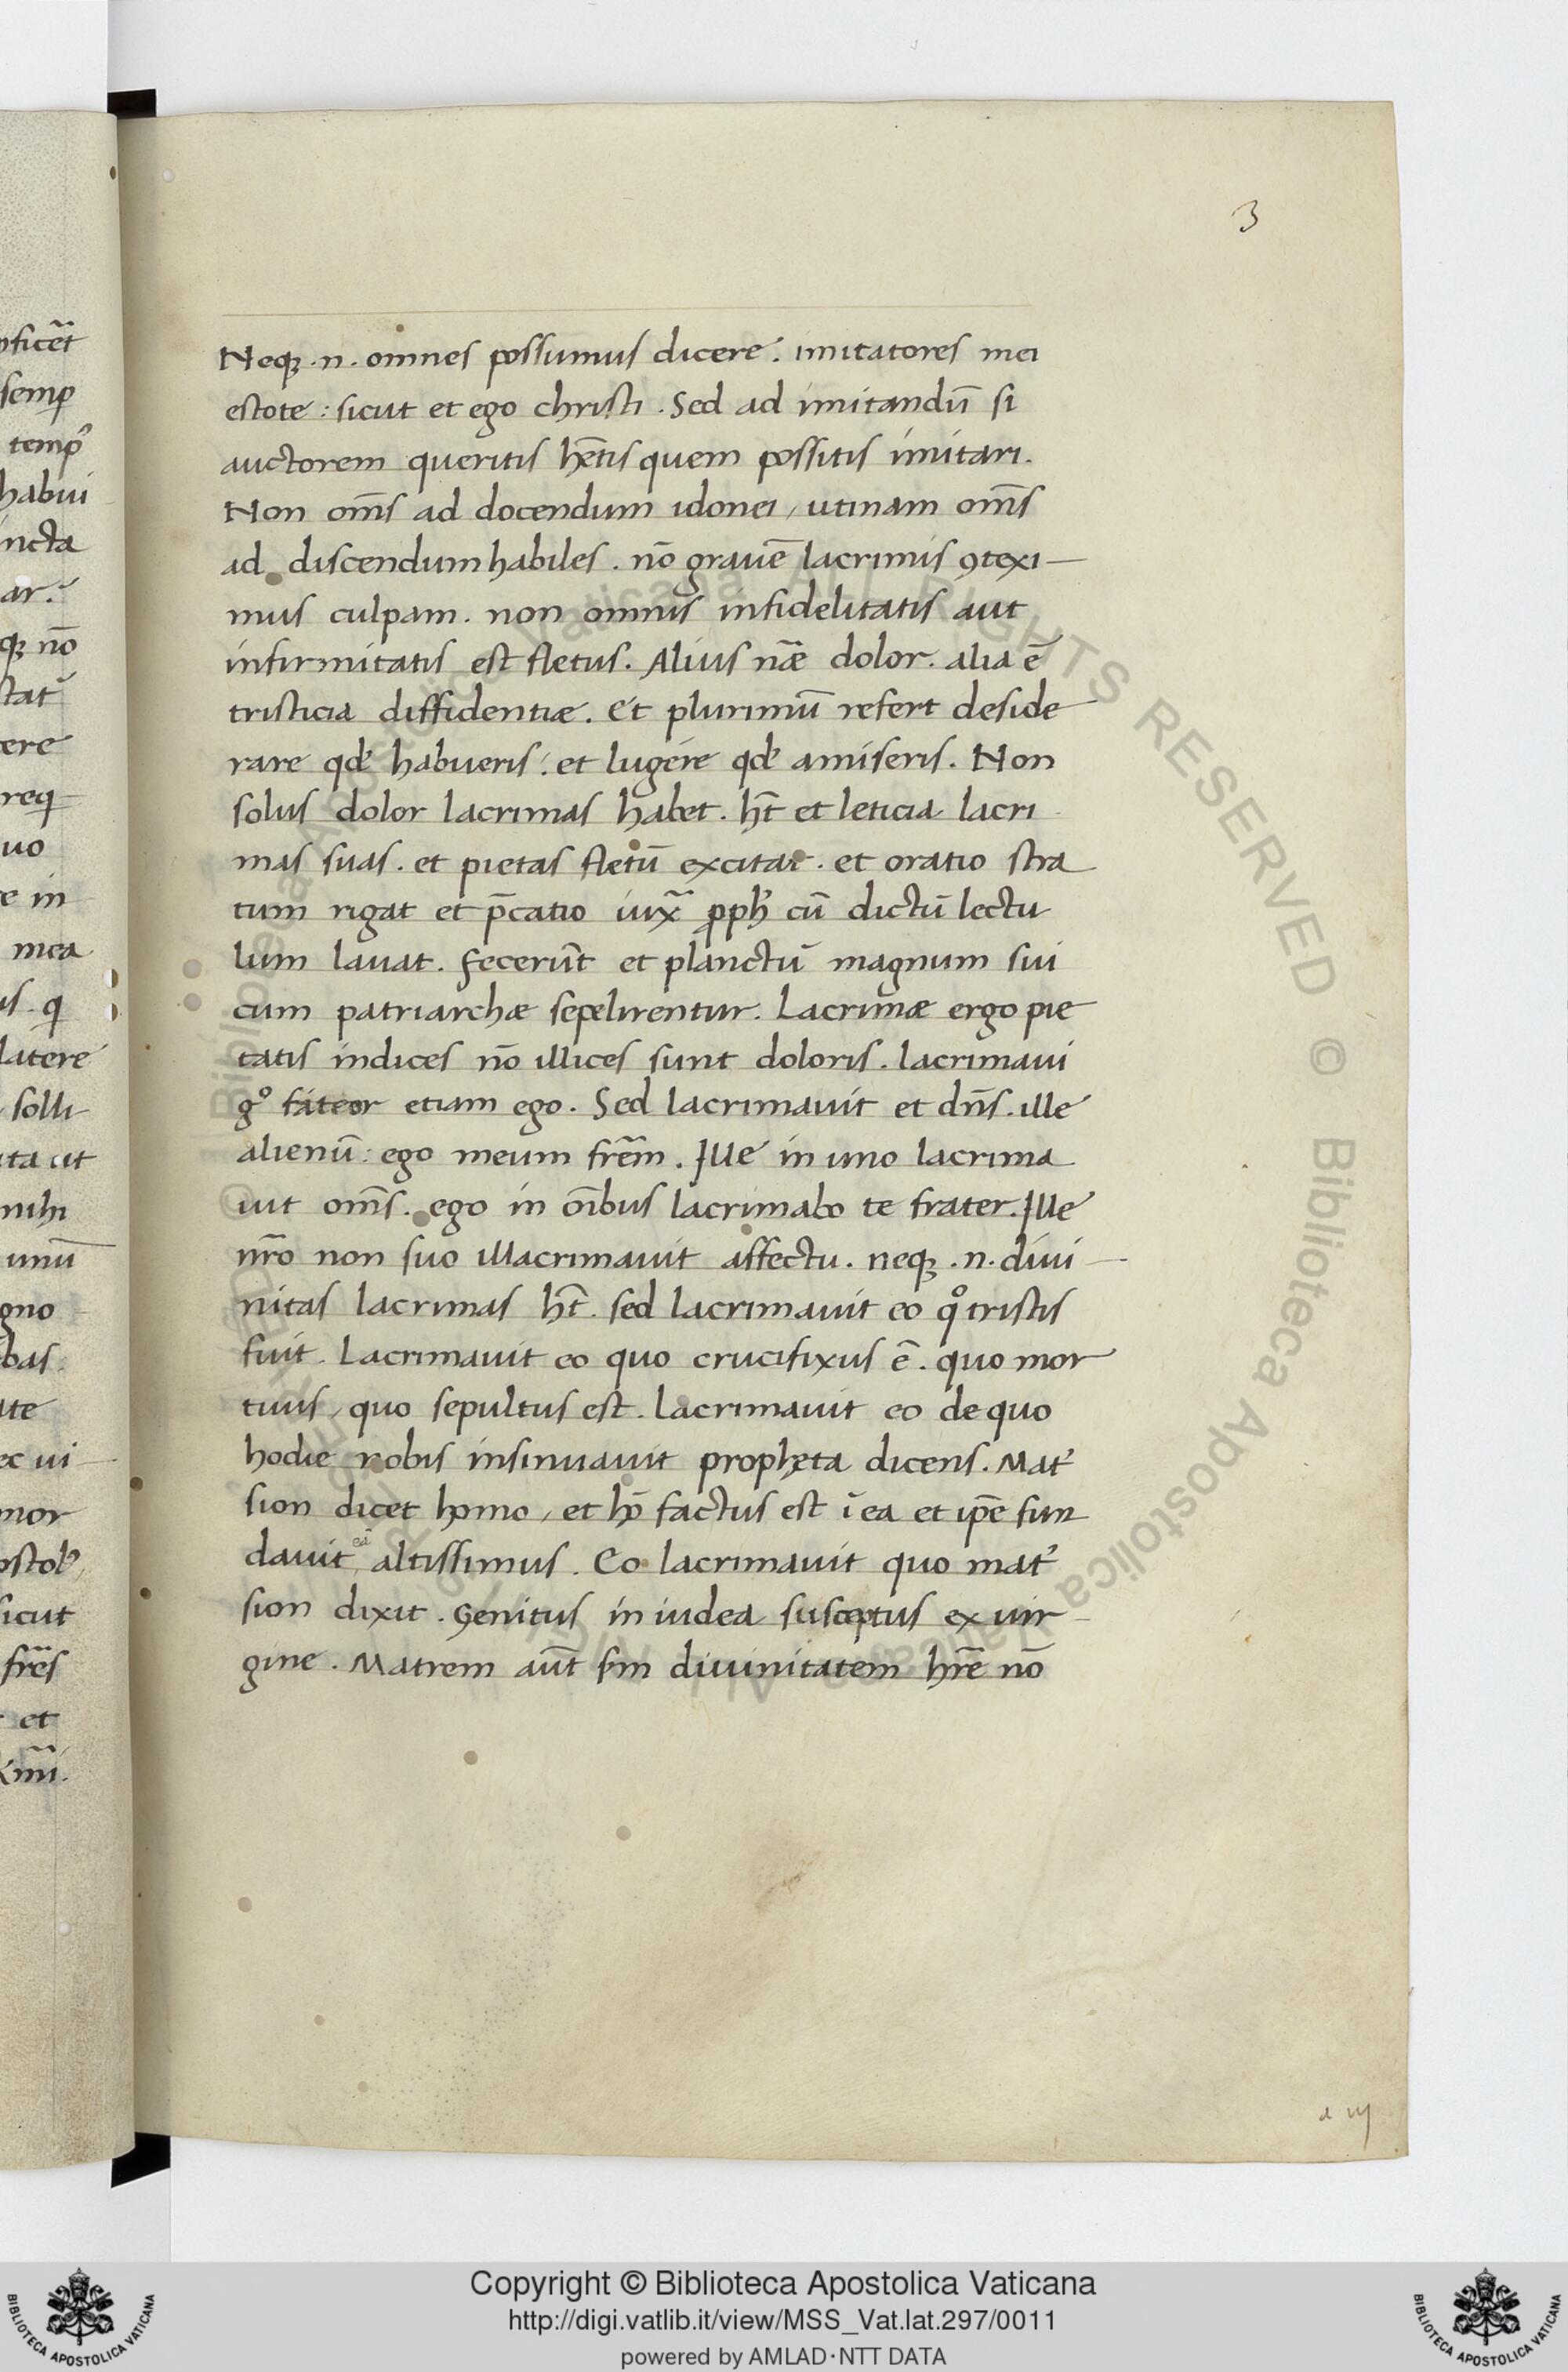 3
Neqꝫ .n. omnes possumus dicere. imitatores mei
estote: sicut et ego christi. Sed ad imitandū si
auctorem queritis hētis quem possitis imitari.
Non om̄s ad docendum idonei, utinam om̄s
ad discendum habiles. nō grauē lacrimis ꝯtexi
mus culpam. non omnis infidelitatis aut
infirmitatis est fletus. Alius nāe dolor. alia ē
tristicia diffidentiæ. Et plurimū refert deside
rare qd' habueris. et lugere qd' amiseris. Non
solus dolor lacrimas habet. ht̄ et leticia lacri
mas suas. et pietas fletū excitat. et oratio stra
tum rigat et p̄catio iuxᷓ ꝓph' cū dictū lectu
lum lauat. fecerūt et planctū magnum sui
cum patriarchæ sepelirentur. Lacrimæ ergo pie
tatis indices nō illices sunt doloris. lacrimaui
gº fateor etiam ego. Sed lacrimauit et dn̄s. ille
alienū: ego meum frēm. Ille in uno lacrima
uit om̄s. ego in oībus lacrimabo te frater. Ille
nr̄o non suo illacrimauit affectu. neqꝫ .n. diui
nitas lacrimas ht̄. sed lacrimauit eo qº tristis
fuit. Lacrimauit eo quo crucifixus ē. quo mor
tuus, quo sepultus est. Lacrimauit eo de quo
hodie nobis insinuauit propheta dicens. Mat'
sion dicet homo, et hō factus est ī ea et ip̄e fun
dauit eā altissimus. Eo lacrimauit quo mat'
sion dixit. Genitus in iudea susceptus ex uir
gine. Matrem aūt sm diuinitatem hr̄e nō
a iij
Copyright © Biblioteca Apostolica Vaticana
http://digi.vatlib.it/view/MSS_Vat.lat.297/0011
powered by AMLAD·NTT DATA
BIBLIOTECA APOSTOLICA VATICANA
BIBLIOTECA APOSTOLICA VATICANA